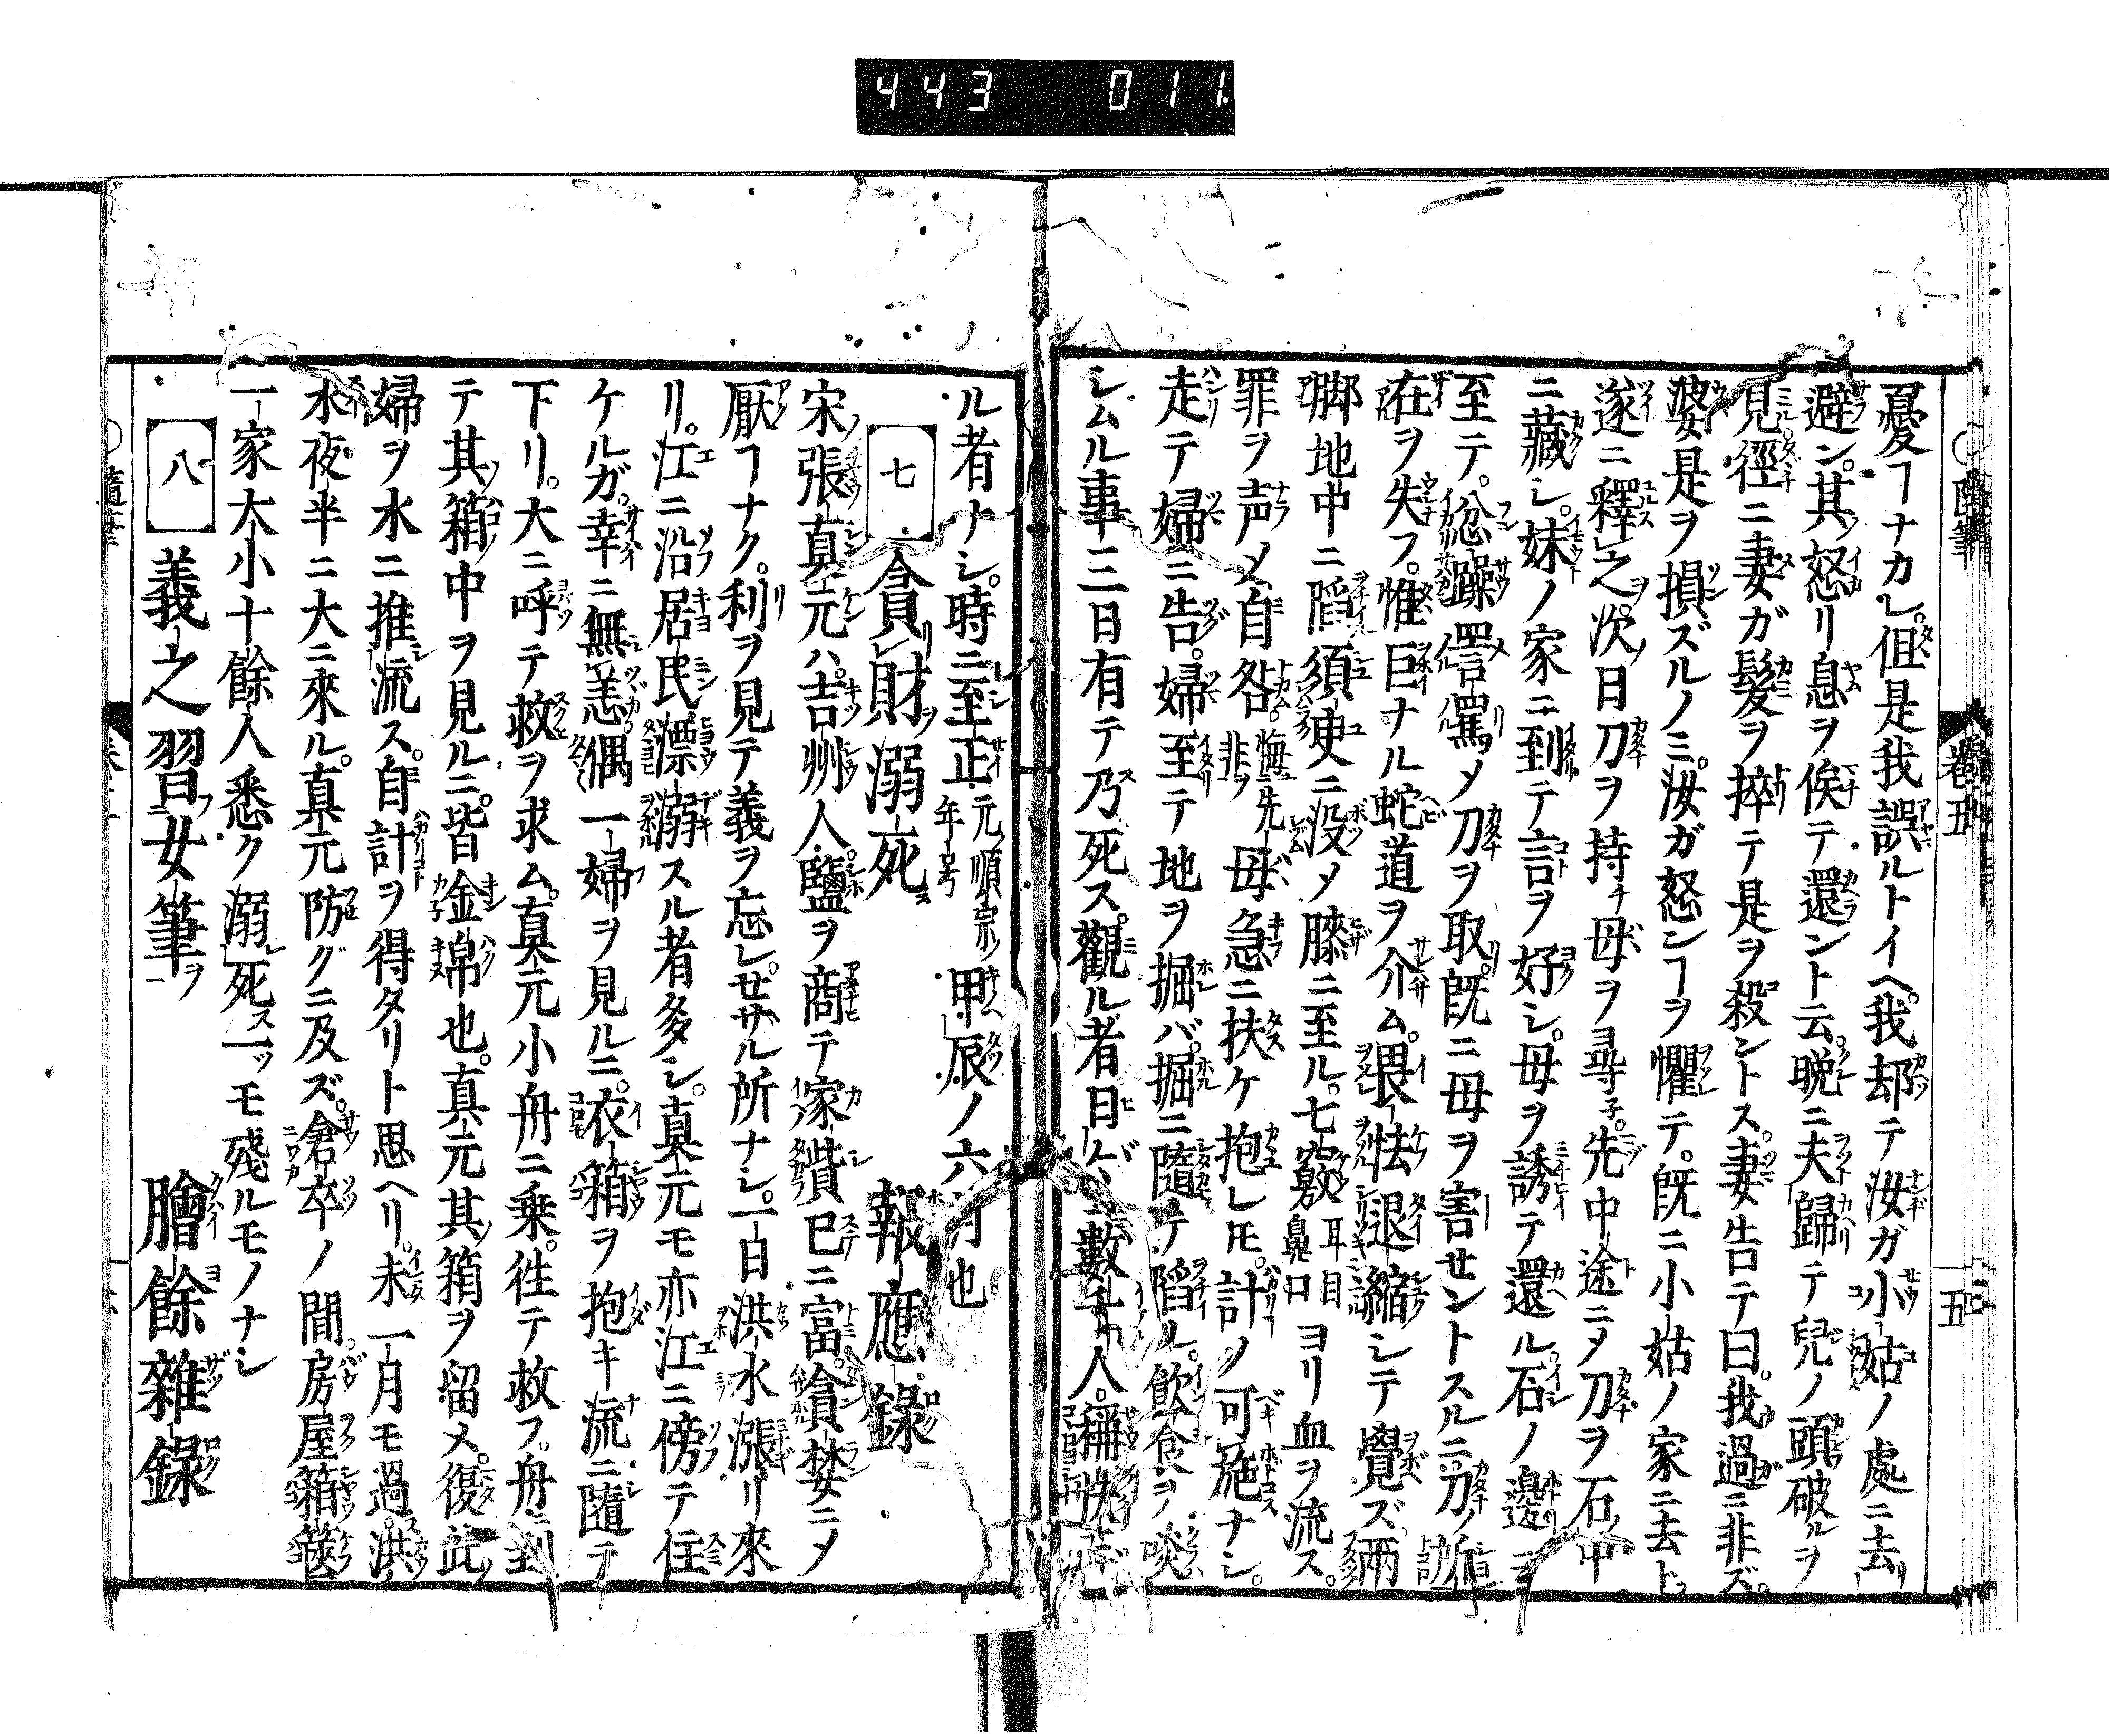 443 011
隨筆
卷五
五
憂ヿナカレ。但是我誤ルトイヘ。我却テ汝ガ小姑ノ處ニ去リ
避ン。其怒リ息ヲ俟テ還ント云。晩ニ夫歸テ兒ノ頭破ルヲ
見。徑ニ妻ガ髮ヲ捽テ是ヲ殺ントス。妻告テ曰。我過ニ非ズ。
婆是ヲ損ズルノミ。汝ガ怒ンヿヲ懼テ。既ニ小姑ノ家ニ去ト
遂ニ釋之。次日刀ヲ持チ母ヲ尋子。先中途ニメ刀ヲ石ノ中
ニ藏シ。妹ノ家ニ到テ言ヲ好シ。母ヲ誘テ還ル。石ノ邊ニ
至テ。忿躁詈罵メ刀ヲ取。既ニ母ヲ割セントスルニ。刀ノ所
在ヲ失フ。惟巨ナル蛇道ヲ介ム。畏怯退縮シテ覺ズ。兩
脚地中ニ陷。須臾ニ没メ膝ニ至ル。七竅耳目鼻口ヨリ血ヲ流ス。
罪ヲ声メ自咎。悔先非ヲ母急ニ扶ケ抱レ𪜈。計ノ可施ナシ。
走テ婦ニ告。婦至テ地ヲ掘バ。掘ニ隨テ陷ル。飲食ヲ啖
シムル事三日有テ乃死ス。觀ル者日ゲニ數千人。稱快
ル者トシ。時ニ至正元順宗ノ年号甲辰ノ六月也
七 貪財溺死 報應錄
宋張真元ハ。吉州人。鹽ヲ商テ家貲已ニ富。貪婪ニメ
厭ヿナク。利ヲ見テ義ヲ忘レ。せザル所ナシ。一日洪水漲リ來
リ。江ニ沿居民漂溺スル者多シ。真元モ亦江ニ傍テ住
ケルガ。幸ニ無恙。偶一婦ヲ見ルニ。衣箱ヲ抱キ流ニ隨テ
下リ。大ニ呼テ救ヲ求ム。真元小舟ニ乗。徃テ救フ。舟ニ到
テ其箱中ヲ見ルニ。皆金帛也。真元其箱ヲ留メ。復此
婦ヲ水ニ推流ス。自計ヲ得タリト思ヘリ。未一月モ過。洪
水夜半ニ大ニ來ル。真元防グニ及ズ。倉卒ノ間。房屋箱篋
一家大小十餘人悉ク溺死ス。一ツモ殘ルモノナシ
八 義之習女筆ヲ 膾餘雜錄
隨筆